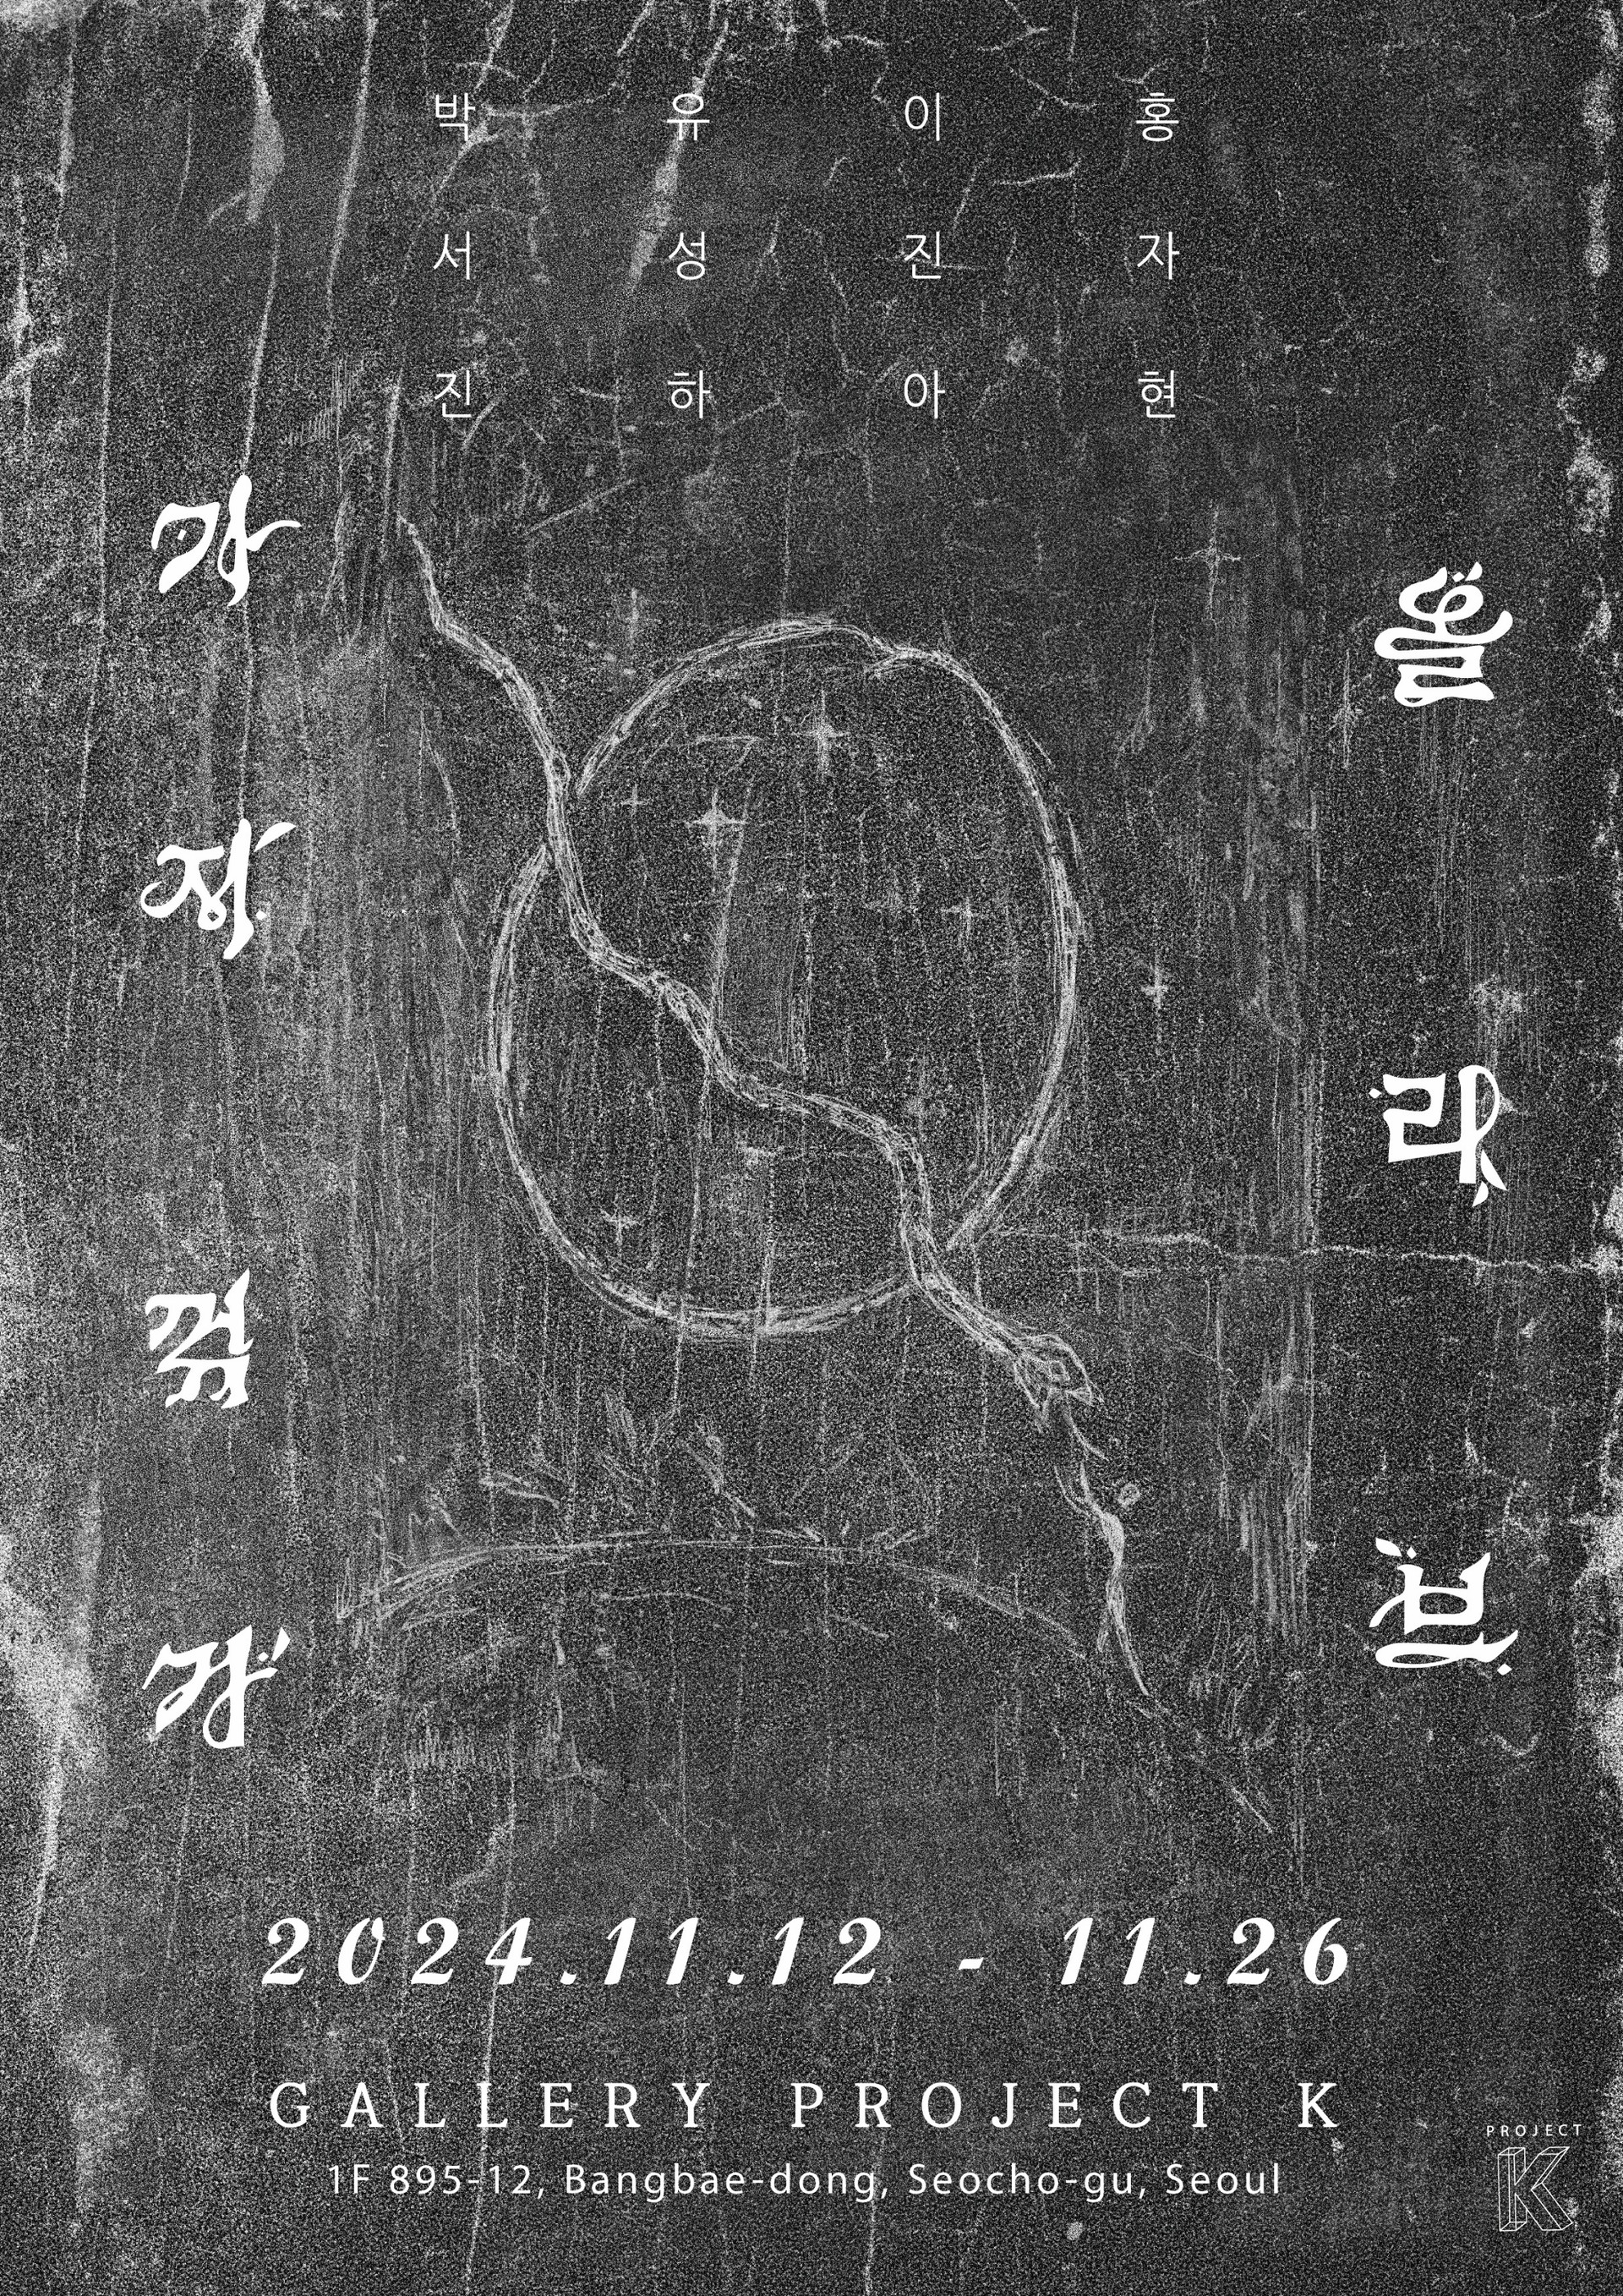 박서진
유성하
이진아
홍자현
올리브
가지꺾기
2024.11.12 - 11.26
GALLERY PROJECT K
1F 895-12, Bangbae-dong, Seocho-gu, Seoul
PROJECT
K